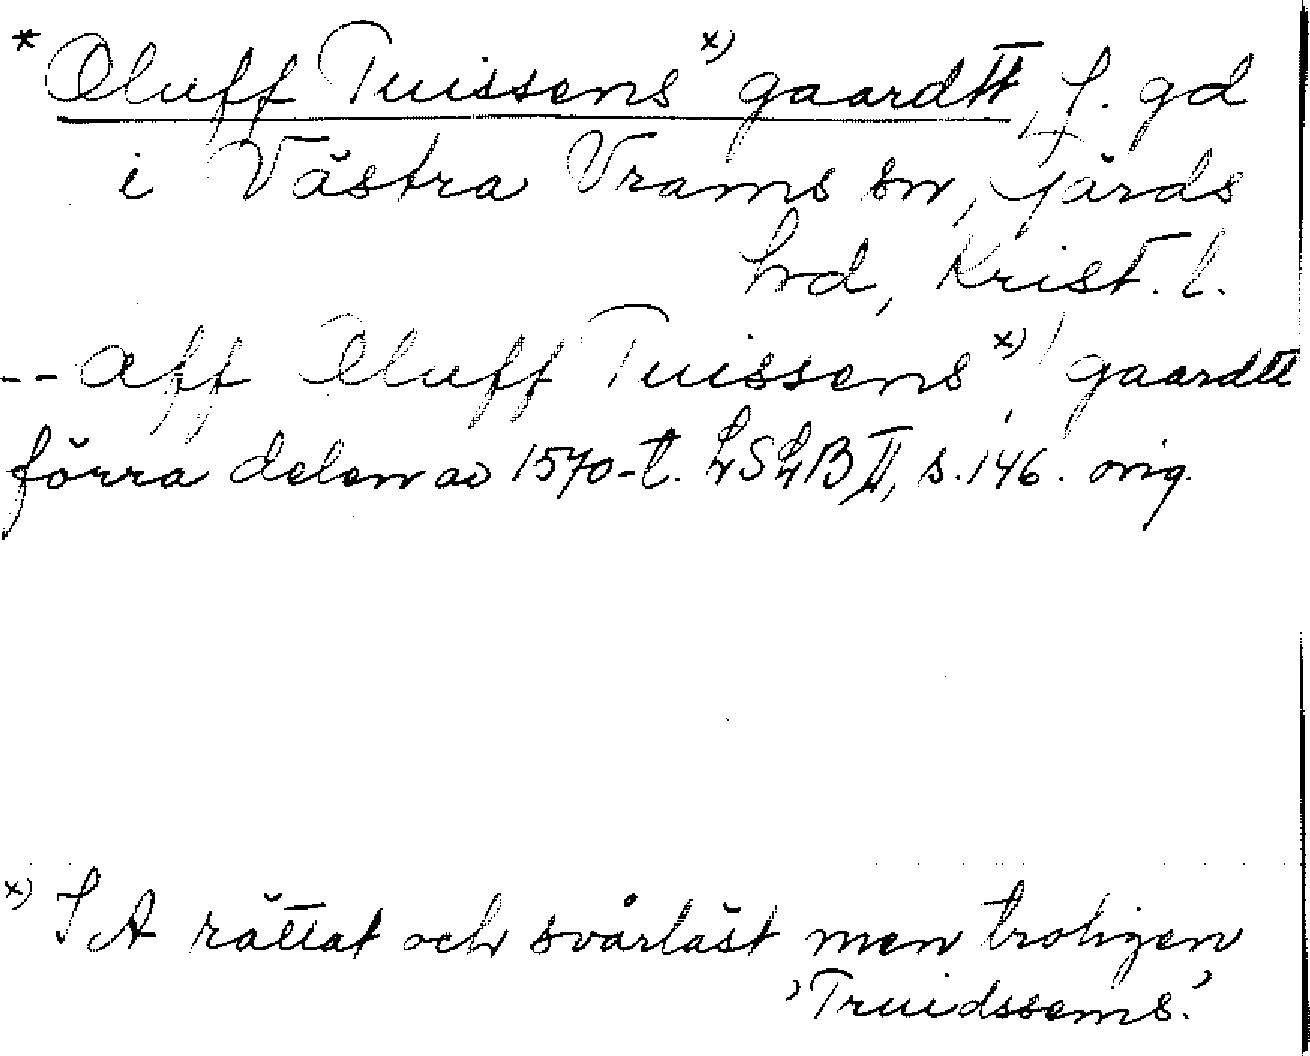 * Oluff Tuissens x) gaardtt, f. gd
i Västra Vrams sn, Gärds
hrd, Krist. l.
-- aff Oluff Tuissens x) gaardtt
förra delen av 1570-t. LSLB II, s. 146. orig.
x) I A rättat och svårläst men troligen
'Truidssems.'